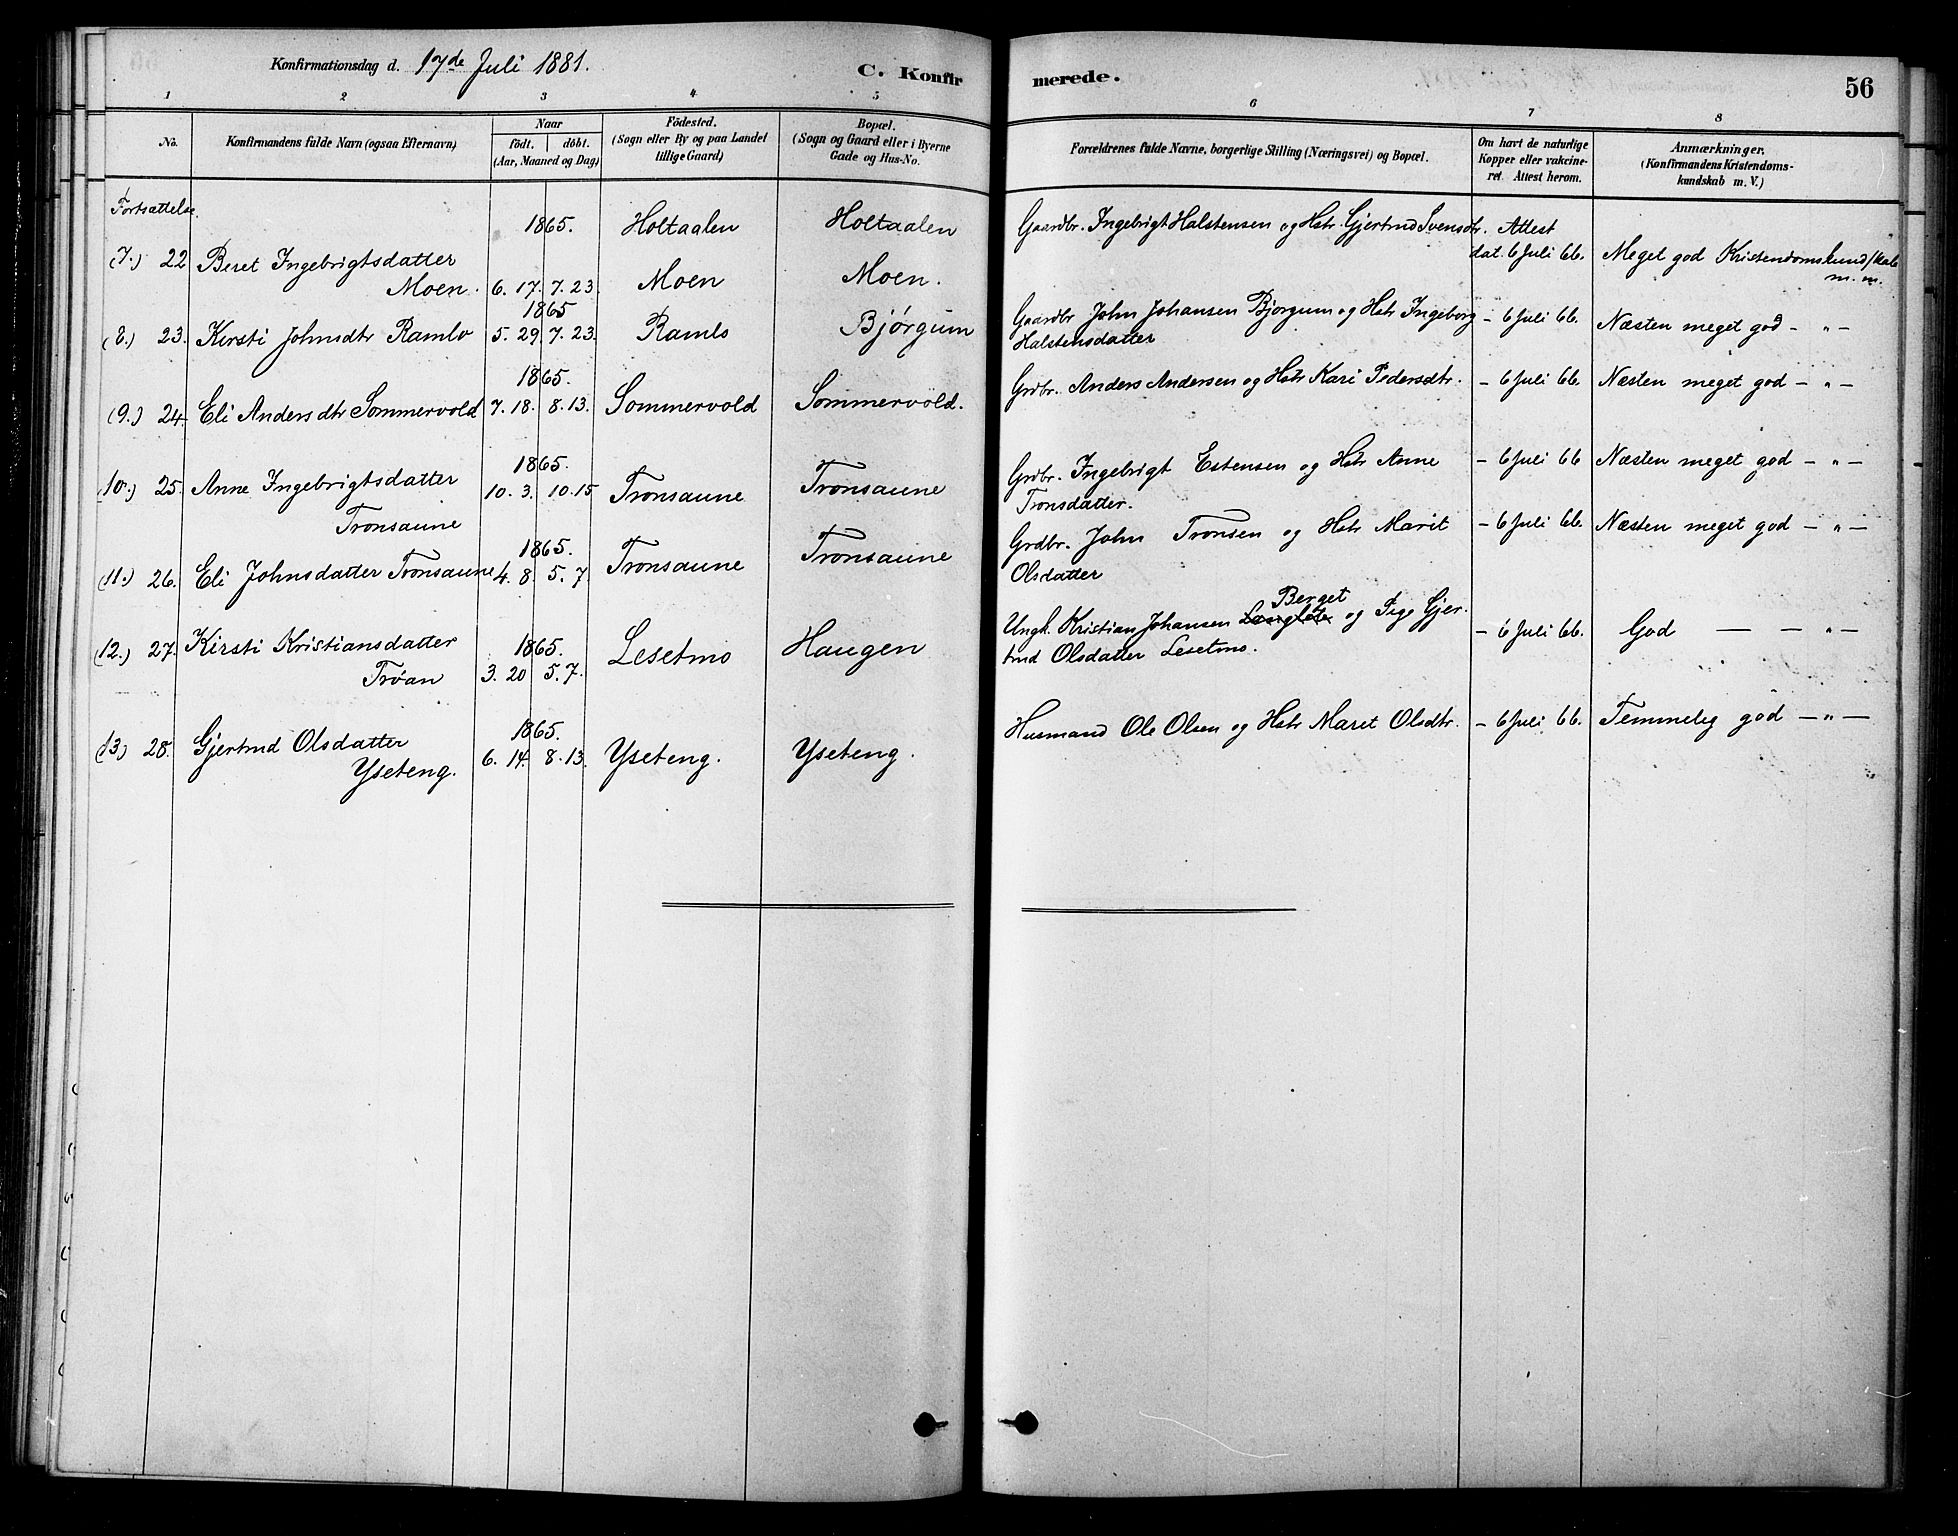 Konfirmationsdag d. 17de Juli 1881.
C. Konfir
merede.
56
1 2 3 4 5 6 7 8
No.
Konfirmandens fulde Navn (ogsaa Efternavn)
Naar
født. døbt.
(Aar, Maaned og Dag)
Födested.
(Sogn eller By og paa Landet
tillige Gaard)
Bopæl.
(Sogn og Gaard eller i Byerne
Gade og Hus-No.
Forældrenes fulde Navne, borgerlige Stilling (Næringsvei) og Bopæl.
Om havt de naturlige
Kopper eller vakcine-
ret. Attest herom.
Anmærkninger.
(Konfirmandens Kristendoms-
kundskab m. V.)
Fortsættelse.
1865. Holtaalen Holtaalen Gaardbr. Ingebrigt Halstensen og Hstr. Gjertrud Svensdtr. Attest
(7.) 22 Beret Ingebrigtsdatter dat. 6 Juli 66. Meget god Kristendomskund/skab
Moen. 6. 17. 7. 23. Moen Moen. m. m.
1865 Gaardbr John Johansen Bjørgum og Hstr Ingeborg
(8.) 23. Kirsti Johnsdtr Ramlo 5. 29. 7. 23. Ramlo Bjørgum Halstensdatter – 6 Juli 66. Næsten meget god – „ –
1865.
(9.) 24. Eli Andersdtr Sommervold 7. 18. 8. 13. Sommervold Sommervold. Grdbr. Anders Andersen og Hstr Kari Pedersdtr. – 6 Juli 66. Næsten meget god – „ –
1865.
(10.) 25. Anne Ingebrigtsdatter 10. 3. 10. 15 Tronsaune Tronsaune Grdbr. Ingebrigt Estensen og Hstr Anne – 6 Juli 66 Næsten meget god – „ –
Tronsaune Tronsdatter.
1865. Grdbr. John Tronsen og Hstr Marit – 6 Juli 66. Næsten meget god – „ –
(11.) 26. Eli Johnsdatter Tronsaune 4. 8. 5. 7. Tronsaune Tronsaune Olsdatter
Berget
(12.) 27. Kirsti Kristiansdatter 1865. Lesetmo Haugen Ungk. Kristian Johansen Langlete og Pige Gjer- – 6 Juli 66. God — – „ –
Trøan 3. 20 5. 7. trud Olsdatter Lesetmo.
1865.
(13) 28. Gjertrud Olsdatter 6. 14. 8. 13. Yseteng. Yseteng. Husmand Ole Olsen og Hstr Maret Olsdtr. – 6 Juli 66. Temmelig god – „ –
Yseteng.